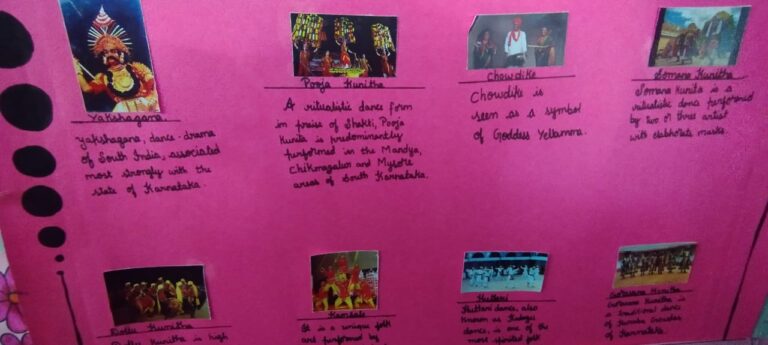 Yakshagana
Yakshagana, dance-drama
of South India, associated
most strongly with the
state of Karnataka.
Pooja Kunitha
A ritualistic dance form
in praise of Shakti, Pooja
Kunita is predominantly
performed in the Mandya,
Chikmagalur and Mysore
areas of South Karnataka.
Chowdike
Chowdike is
seen as a symbol
of Goddess Yellamma.
Somana Kunitha
Somana Kunita is a
ritualistic dance performed
by two or three artist
with elaborate masks.
Dollu Kunitha
Dollu Kunitha is high
Kamsale
It is a unique folk
art performed by
Huttari
Huttari dance, also
known as Kodagu
dance, is one of the
most spirited folk
Kunitha
Kunitha is
a traditional dance
of Kuruba Gowdas,
of Karnataka.